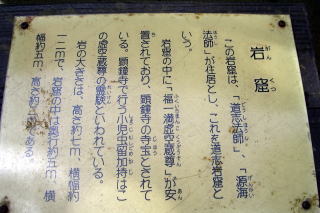 岩窟
がんくつ
この岩窟は、「道志法師」、「源海
法師」が住居とし、これを道志岩窟と
いう。
岩窟の中に「福一満虚空蔵尊」が安
置されており、顕鐘寺の寺宝とされて
いる。顕鐘寺で行う小児虫留加持はこ
の虚空蔵尊の霊験といわれている。
岩の大きさは、高さ約七m、横幅約
一二mで、岩窟の中は奥行約五m、横
幅約五m、高さ約 mである。